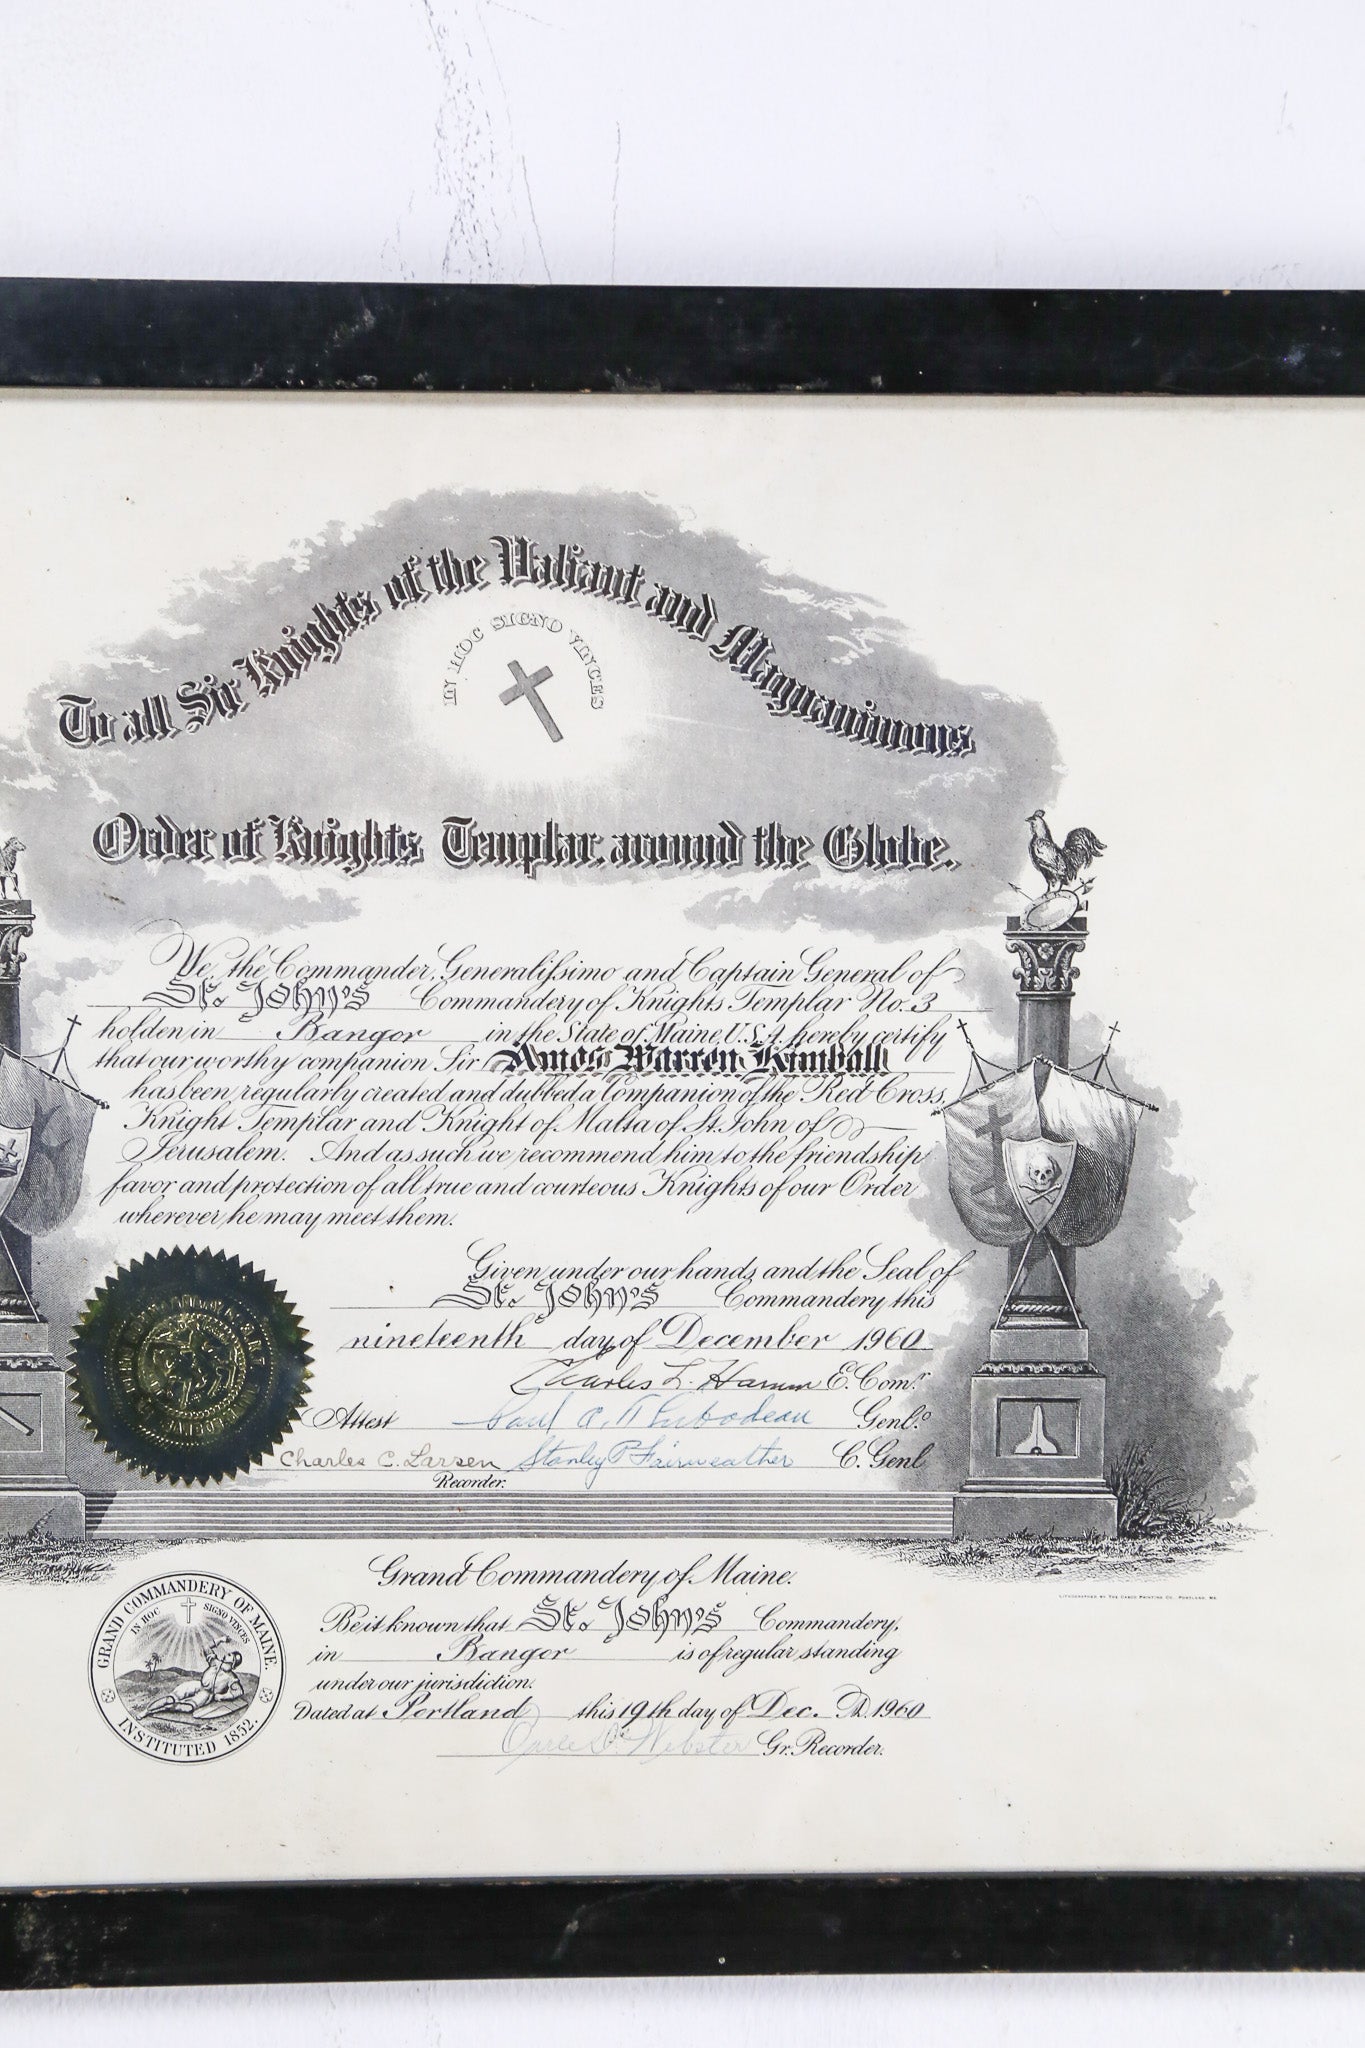 To all Sir Knights of the Valiant and Magnanimous
IN HOC SIGNO VINCES
Order of Knights Templar around the Globe.
We, the Commander, Generalissimo and Captain General of
St. John's Commandery of Knights Templar No. 3
holden in Bangor in the State of Maine, U.S.A. hereby certify
that our worthy companion Sir Amos Warren Kimball
has been regularly created and dubbed a Companion of the Red Cross,
Knight Templar and Knight of Malta of St. John of
Jerusalem. And as such we recommend him to the friendship
favor and protection of all true and courteous Knights of our Order
wherever he may meet them.
Given under our hands and the Seal of
St. John's Commandery this
nineteenth day of December 1960
Charles L. E. Comr.
Attest Paul Genlo.
Charles C. Larsen Stanley P. Fairweather C. Genl
Recorder.
Grand Commandery of Maine.
Be it known that St. John's Commandery,
in Bangor is of regular standing
under our jurisdiction.
Dated at Portland this 19th day of Dec. A.D. 1960
Webster Gr. Recorder.
GRAND COMMANDERY OF MAINE.
IN HOC SIGNO VINCES
INSTITUTED 1852.
LITHOGRAPHED BY THE CASCO PRINTING CO. PORTLAND, ME.